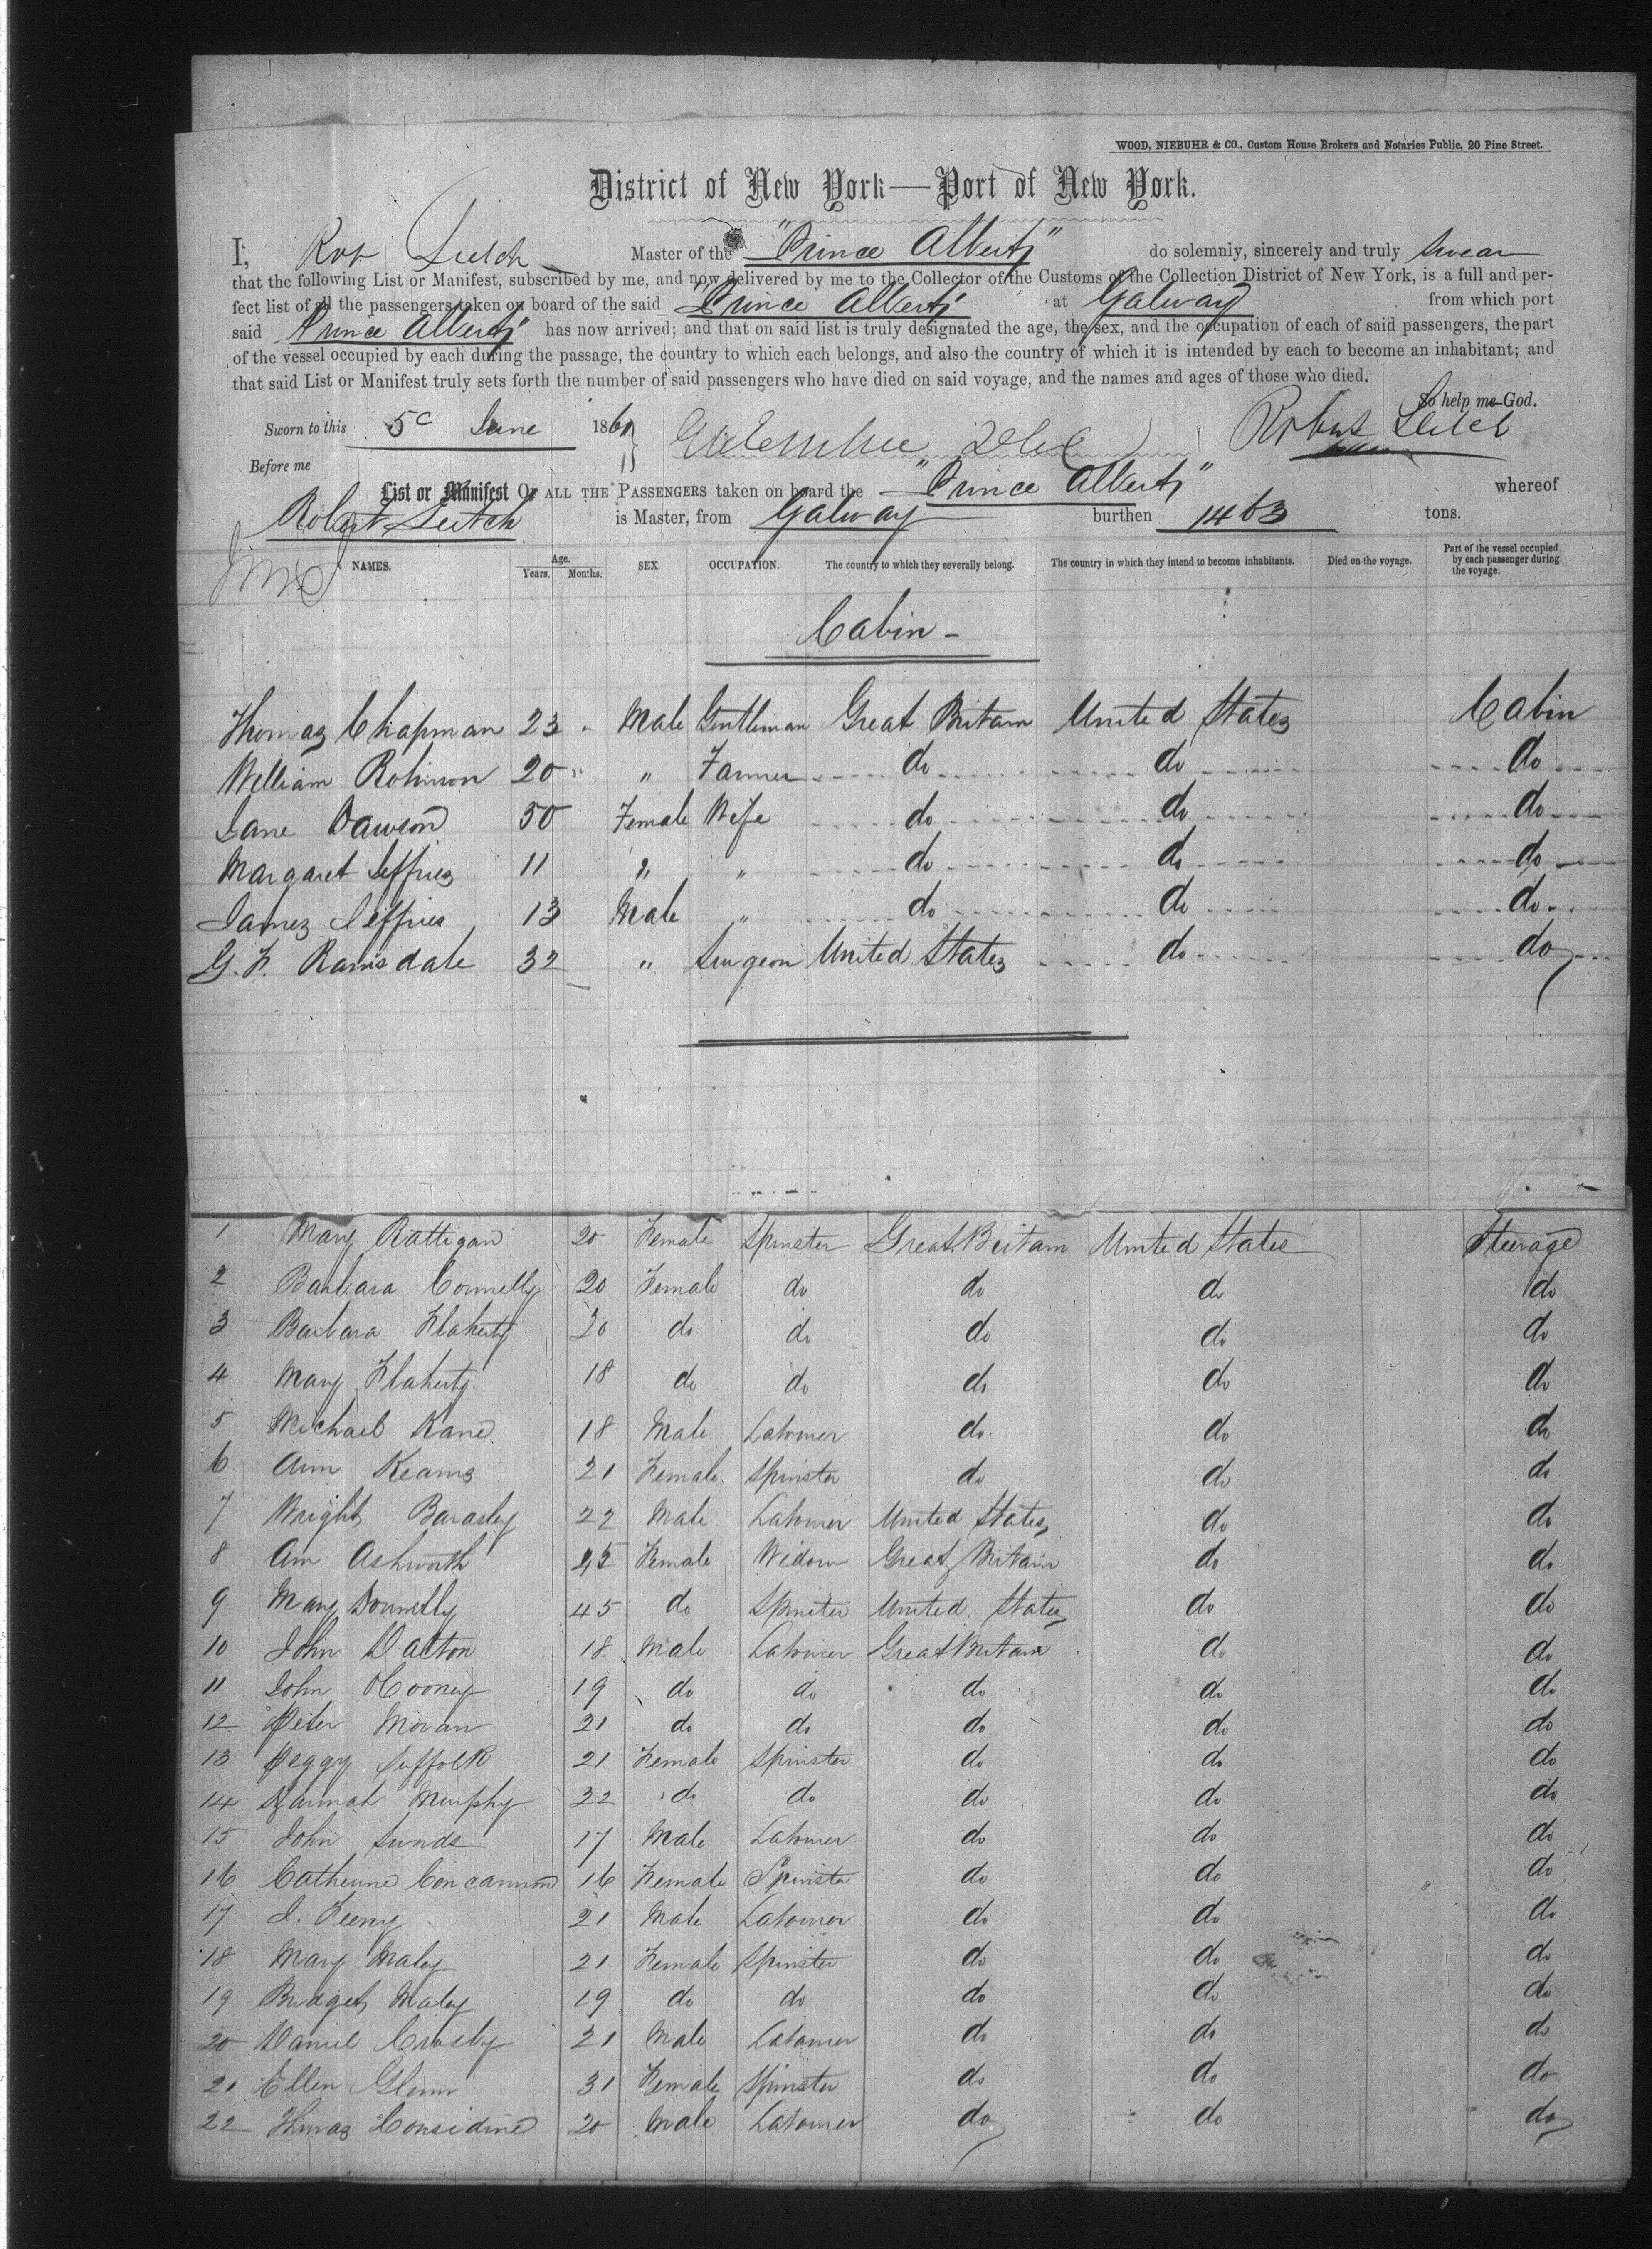 WOOD, NIEBUHR & CO., Custom House Brokers and Notaries Public, 20 Pine Street.
District of New York—Port of New York.
I, Rob Leitch Master of the "Prince Albert" do solemnly, sincerely and truly swear
that the following List or Manifest, subscribed by me, and now delivered by me to the Collector of the Customs of the Collection District of New York, is a full and per-
fect list of all the passengers taken on board of the said "Prince Albert" at Galway from which port
said "Prince Albert" has now arrived; and that on said list is truly designated the age, the sex, and the occupation of each of said passengers, the part
of the vessel occupied by each during the passage, the country to which each belongs, and also the country of which it is intended by each to become an inhabitant; and
that said List or Manifest truly sets forth the number of said passengers who have died on said voyage, and the names and ages of those who died.
So help me God.
Sworn to this 5 June 186 Robert Leitch
Before me
List or Manifest OF ALL THE PASSENGERS taken on board the "Prince Albert" whereof
Robert Leitch is Master, from Galway burthen 1463 tons.
NAMES. Age. Years. Months. SEX OCCUPATION. The country to which they severally belong. The country in which they intend to become inhabitants. Died on the voyage. Part of the vessel occupied by each passenger during the voyage.
Cabin -
Thomas Chapman 23 Male Gentleman Great Britain United States Cabin
William Robinson 20 " Farmer do do do
Jane Dawson 50 Female Wife do do do
Margaret Jeffries 11 " " do do do
James Jeffries 13 Male " do do do
G. F. Ramsdale 32 " Surgeon United States do do
1 Mary Rattigan 20 Female Spinster Great Britain United States Steerage
2 Barbara Connelly 20 Female do do do do
3 Barbara Flaherty 20 do do do do do
4 Mary Flaherty 18 do do do do do
5 Michael Kane 18 Male Labourer do do do
6 Ann Kearns 21 Female Spinster do do do
7 Wright Barasley 22 Male Labourer United States do do
8 Ann Ashworth 45 Female Widow Great Britain do do
9 Mary Donnelly 45 do Spinster United States do do
10 John Dalton 18 Male Labourer Great Britain do do
11 John Cooney 19 do do do do do
12 Peter Moran 21 do do do do do
13 Peggy Suffolk 21 Female Spinster do do do
14 Hannah Murphy 22 do do do do do
15 John Sunds 17 Male Labourer do do do
16 Catherine Concannon 16 Female Spinster do do do
17 J. Feeny 21 Male Labourer do do do
18 Mary Maley 21 Female Spinster do do do
19 Bridget Maley 19 do do do do do
20 Daniel Crosby 21 Male Labourer do do do
21 Ellen Glenn 31 Female Spinster do do do
22 Thomas Considine 20 Male Labourer do do do